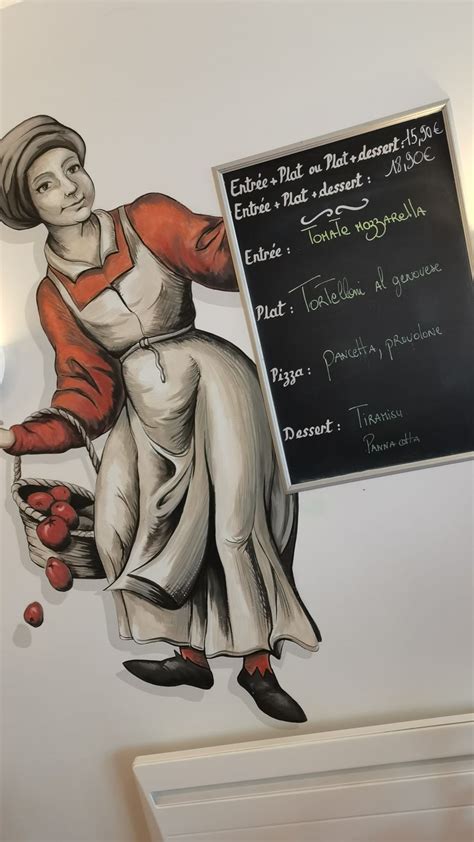 Entrée + Plat ou Plat + dessert : 15,90€
Entrée + Plat + dessert : 18,90€
Entrée : Tomate mozzarella
Plat : Tortelloni al genovese
Pizza : pancetta, provolone
Dessert : Tiramisu
Panna cotta